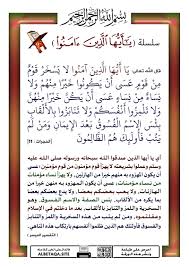 بسم الله الرحمن الرحيم
سلسلة ﴿ يَـٰٓأَيُّهَا ٱلَّذِينَ ءَامَنُوا۟ ﴾
يَا أَيُّهَا الَّذِينَ آمَنُوا لَا يَسْخَرْ قَوْمٌ
مِنْ قَوْمٍ عَسَى أَنْ يَكُونُوا خَيْرًا مِنْهُمْ وَلَا
نِسَاءٌ مِنْ نِسَاءٍ عَسَى أَنْ يَكُنَّ خَيْرًا مِنْهُنَّ
وَلَا تَلْمِزُوا أَنْفُسَكُمْ وَلَا تَنَابَزُوا بِالْأَلْقَابِ
بِئْسَ الِاسْمُ الْفُسُوقُ بَعْدَ الْإِيمَانِ وَمَنْ لَمْ
يَتُبْ فَأُولَئِكَ هُمُ الظَّالِمُونَ
[الحجرات : 11]
أي يا أيها الذين صدقوا الله سبحانه ورسوله صلى الله عليه
وسلم وعملوا بشريعته لا يهزأ قوم مؤمنون من قوم مؤمنين عسى
أن يكون المهزوء به منهم خيرا من الهازئين ولا يهزأ نساء مؤمنات
من نساء مؤمنات عسى أن يكون المهزوء به منهن خيرا من
الهازئات ولا يعب بعضكم بعضا ولا يدع بعضكم بعضا
بما يكره من الألقاب بئس الصفة والاسم الفسوق وهو
السخرية واللمز والتنابز بالألقاب بعد ما دخلتم في الإسلام
وعقلتموه ومن لم يتب من هذه السخرية واللمز والتنابز
والفسوق فأولئك هم الذين ظلموا أنفسهم بارتكاب هذه المناهي
ALBETAQA.SITE